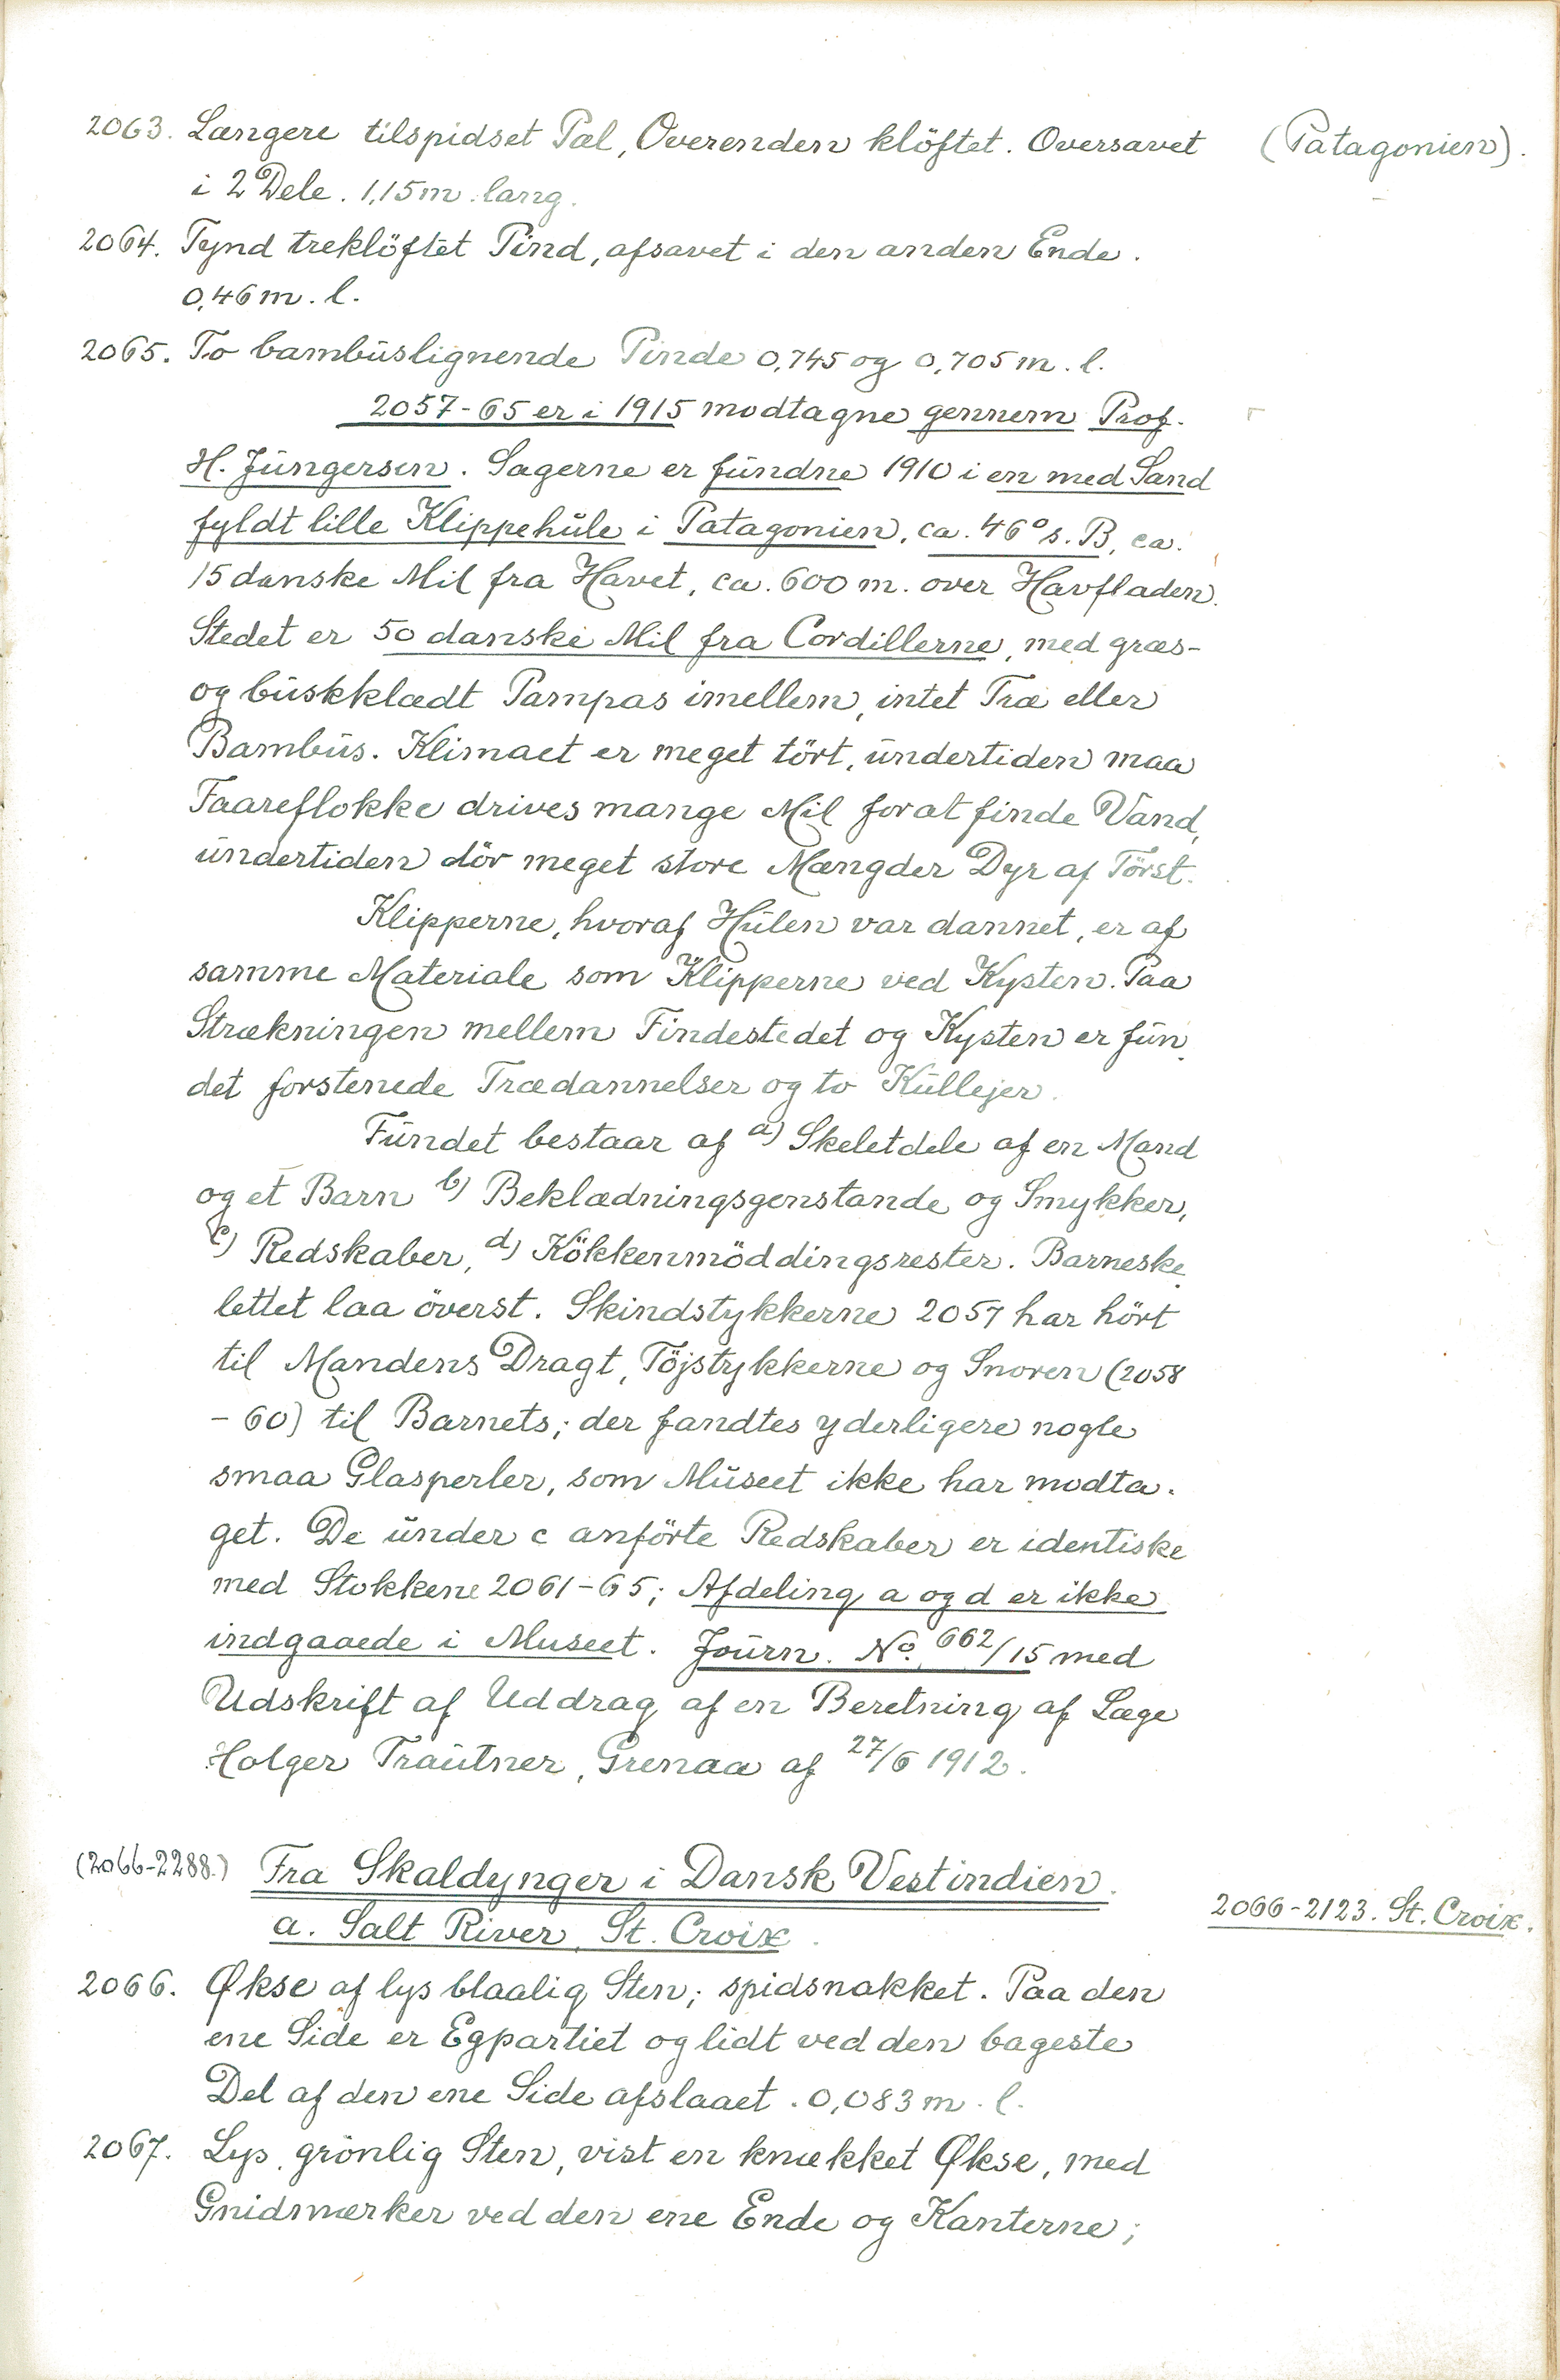 2063. Længere tilspidset Pæl, Overenden klöftet. Oversavet (Patagonien).
i 2 Dele. 1,15 m. lang.
2064. Tynd treklöftet Pind, afsavet i den anden Ende.
0,46 m. l.
2065. To bambuslignende Pinde 0,745 og 0,705 m. l.
2057-65 er i 1915 modtagne gennem Prof.
H. Jungersen. Sagerne er fundne 1910 i en med Sand
fyldt lille Klippehule i Patagonien, ca. 46° s. B, ca.
15 danske Mil fra Havet, ca. 600 m. over Havfladen.
Stedet er 50 danske Mil fra Cordillerne, med græs-
og buskklædt Pampas imellem, intet Træ eller
Bambus. Klimaet er meget tört, undertiden maa
Faareflokke drives mange Mil for at finde Vand,
undertiden dör meget store Mængder Dyr af Törst.
Klipperne, hvoraf Hulen var dannet, er af
samme Materiale som Klipperne ved Kysten. Paa
Strækningen mellem Findestedet og Kysten er fun-
det forstenede Trædannelser og to Kullejer.
Fundet bestaar af a) Skeletdele af en Mand
og et Barn b) Beklædningsgenstande og Smykker,
c) Redskaber, d) Kökkenmöddingsrester. Barneske-
lettet laa överst. Skindstykkerne 2057 har hört
til Mandens Dragt, Töjstykkerne og Snoren (2058
-60) til Barnets; der fandtes yderligere nogle
smaa Glasperler, som Museet ikke har modta-
get. De under c anförte Redskaber er identiske
med Stokkene 2061-65; Afdeling a og d er ikke
indgaaede i Museet. Journ. No. 662/15 med
Udskrift af Uddrag af en Beretning af Læge
Holger Trautner, Grenaa af 27/6 1912.
(2066-2288.) Fra Skaldynger i Dansk Vestindien.
a. Salt River, St. Croix.
2066-2123. St. Croix.
2066. Økse af lys blaalig Sten; spidsnakket. Paa den
ene Side er Egpartiet og lidt ved den bageste
Del af den ene Side afslaaet. 0,083 m. l.
2067. Lys, grönlig Sten, vist en knækket Økse, med
Gnidmærker ved den ene Ende og Kanterne;